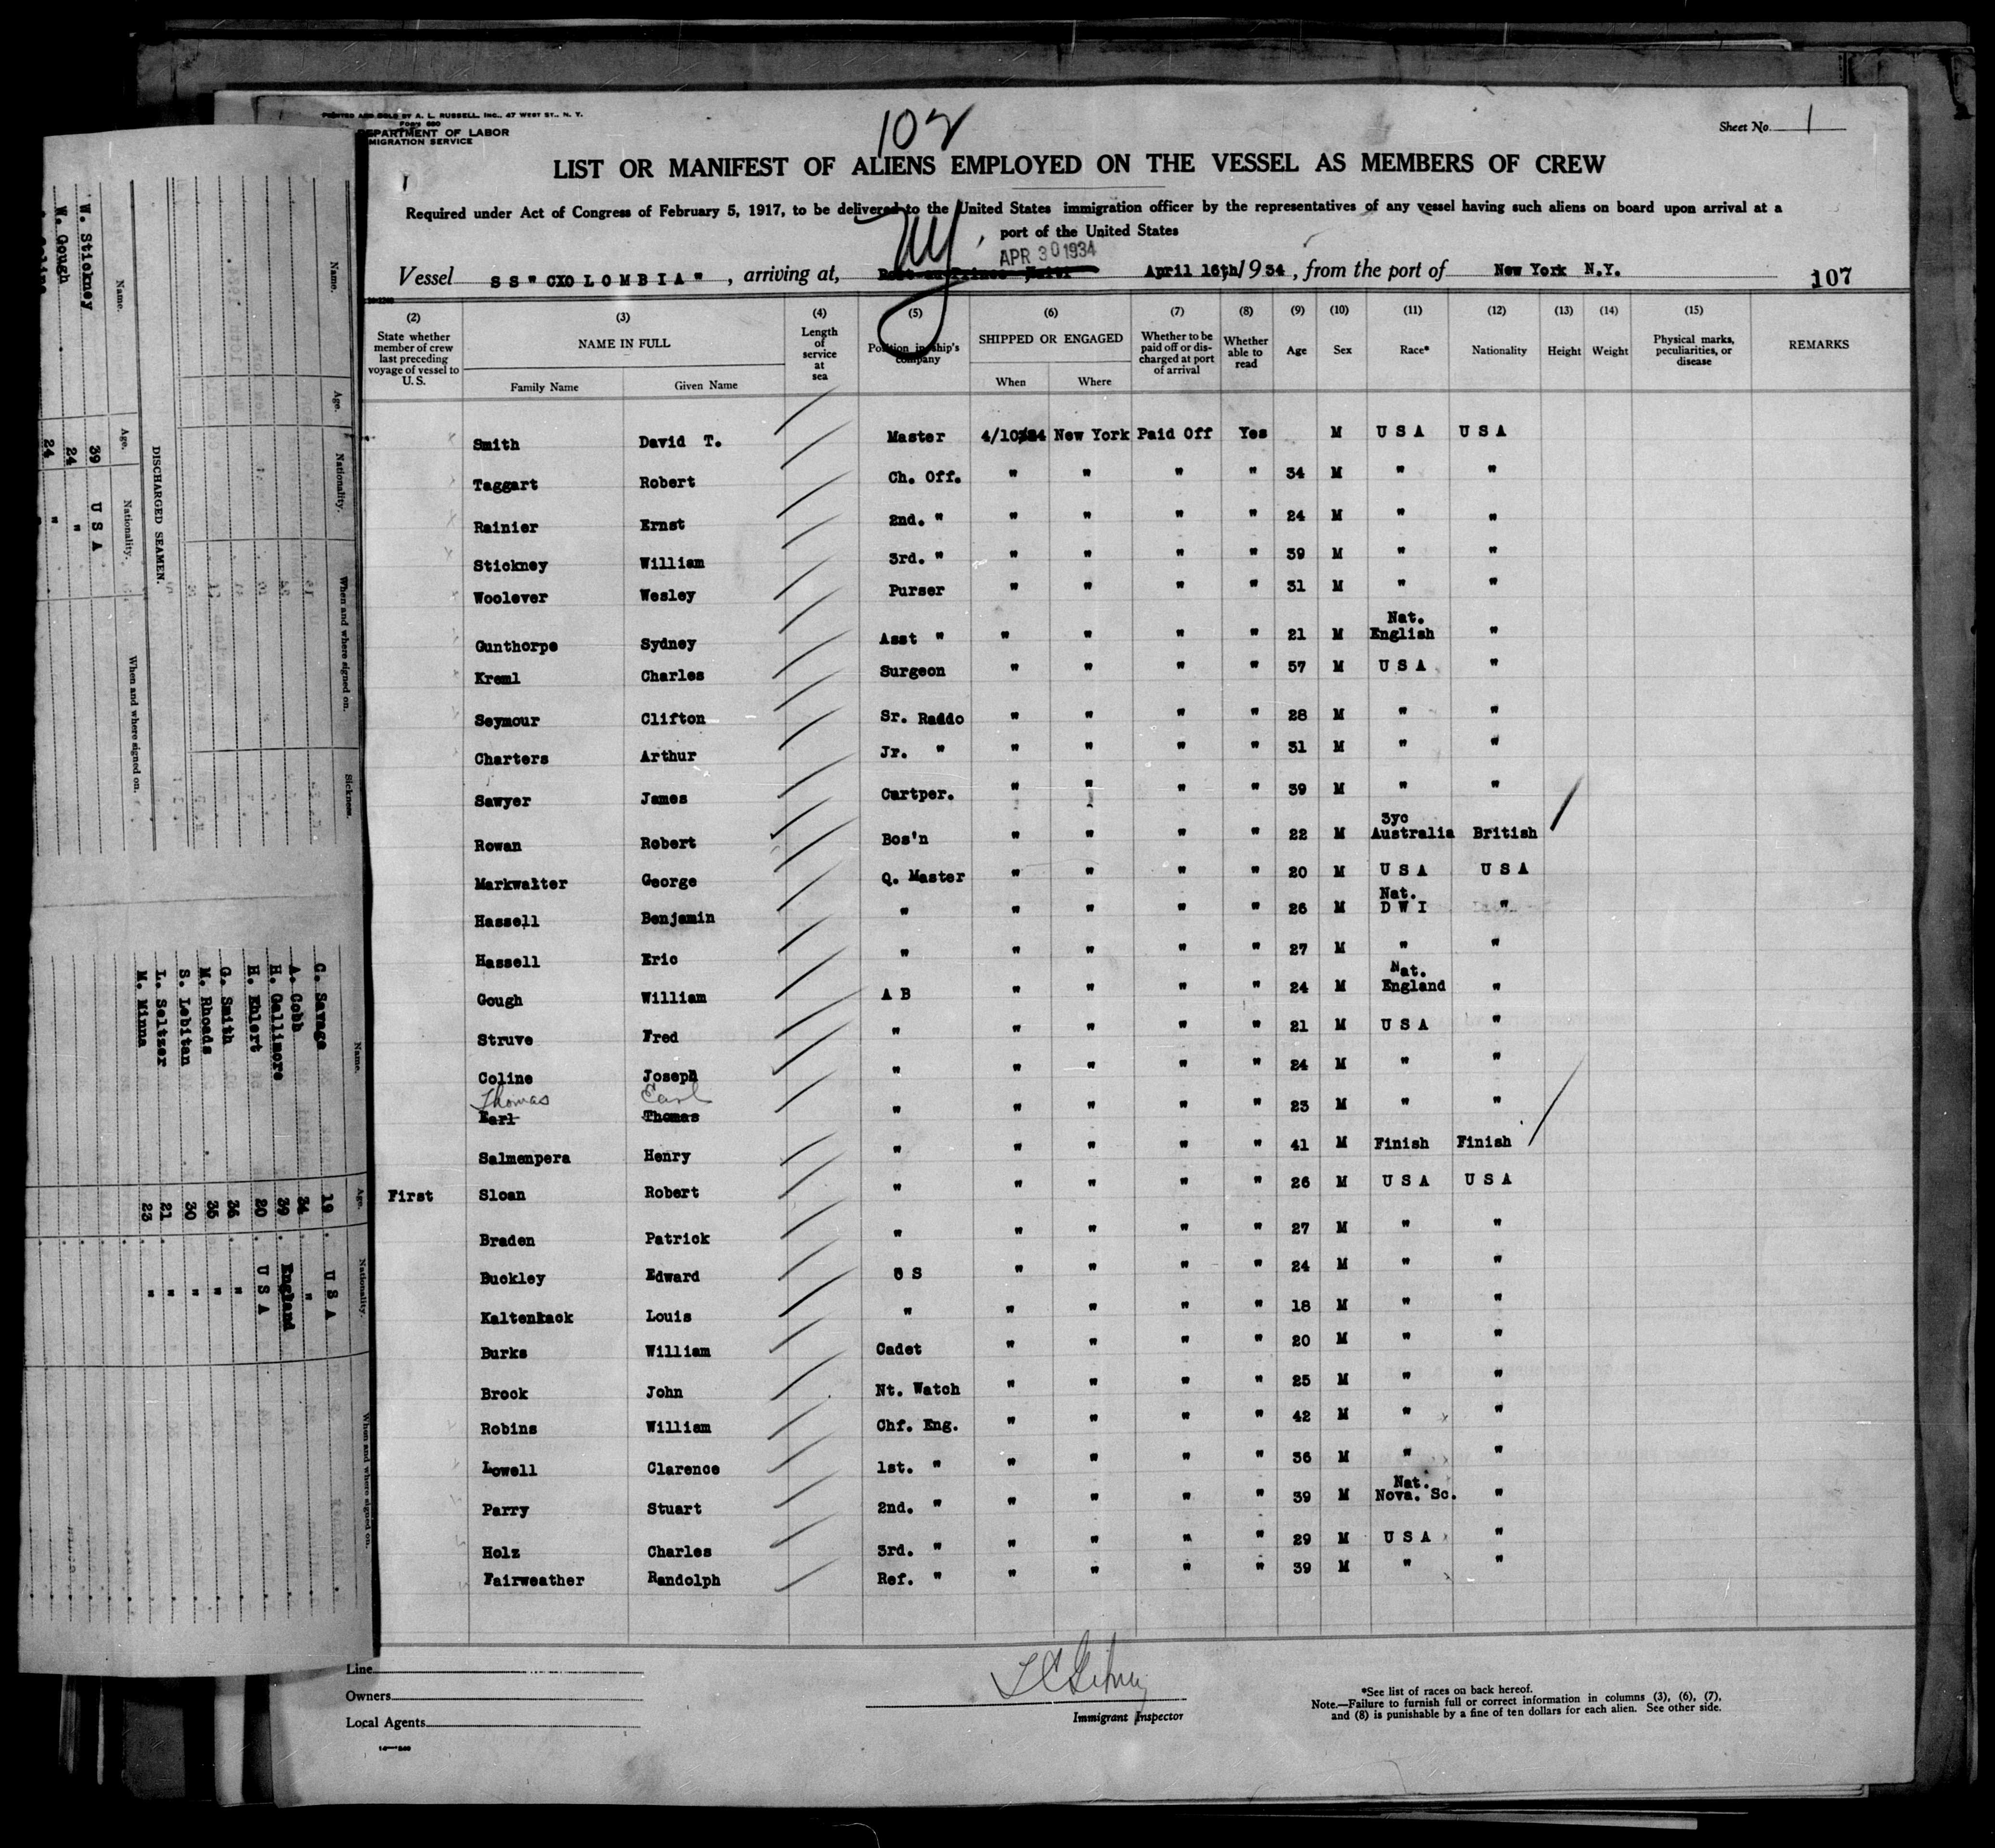 PRINTED AND SOLD BY A. L. RUSSELL, INC., 47 WEST ST., N. Y.
Form 680
DEPARTMENT OF LABOR
MIGRATION SERVICE
107
Sheet No. 1
LIST OR MANIFEST OF ALIENS EMPLOYED ON THE VESSEL AS MEMBERS OF CREW
Required under Act of Congress of February 5, 1917, to be delivered to the United States immigration officer by the representatives of any vessel having such aliens on board upon arrival at a
port of the United States
APR 30 1934
Vessel SS" CXO L O M B I A ", arriving at, Port au Prince Haiti April 16th/1934, from the port of New York N.Y. 107
(2) State whether member of crew last preceding voyage of vessel to U.S. (3) NAME IN FULL Family Name Given Name (4) Length of service at sea (5) Position in ship's company (6) SHIPPED OR ENGAGED When Where (7) Whether to be paid off or discharged at port of arrival (8) Whether able to read (9) Age (10) Sex (11) Race* (12) Nationality (13) Height (14) Weight (15) Physical marks, peculiarities, or disease REMARKS
Smith David T. Master 4/10/34 New York Paid Off Yes M U S A U S A
Taggart Robert Ch. Off. " " " " 34 M " "
Rainier Ernst 2nd. " " " " " 24 M " "
Stickney William 3rd. " " " " " 39 M " "
Woolever Wesley Purser " " " " 31 M " "
Gunthorpe Sydney Asst " " " " " 21 M Nat. English "
Kreml Charles Surgeon " " " " 57 M U S A "
Seymour Clifton Sr. Raddo " " " " 28 M " "
Charters Arthur Jr. " " " " " 31 M " "
Sawyer James Cartper. " " " " 39 M " "
Rowan Robert Bos'n " " " " 22 M 3yc Australia British
Markwalter George Q. Master " " " " 20 M U S A U S A
Hassell Benjamin " " " " " 26 M Nat. D W I "
Hassell Eric " " " " " 27 M " "
Gough William A B " " " " 24 M Nat. England "
Struve Fred " " " " " 21 M U S A "
Coline Joseph " " " " " 24 M " "
Thomas Earl
Earl Thomas " " " " " 23 M " "
Salmenpera Henry " " " " " 41 M Finish Finish
First Sloan Robert " " " " " 26 M U S A U S A
Braden Patrick " " " " " 27 M " "
Buckley Edward O S " " " " 24 M " "
Kaltenback Louis " " " " " 18 M " "
Burks William Cadet " " " " 20 M " "
Brock John Nt. Watch " " " " 25 M " "
Robins William Chf. Eng. " " " " 42 M " "
Lowell Clarence 1st. " " " " " 36 M " "
Parry Stuart 2nd. " " " " " 39 M Nat. Nova. Sc. "
Holz Charles 3rd. " " " " " 29 M U S A "
Fairweather Randolph Ref. " " " " " 39 M " "
Line
Owners
Local Agents
Immigrant Inspector
*See list of races on back hereof.
Note.—Failure to furnish full or correct information in columns (3), (6), (7),
and (8) is punishable by a fine of ten dollars for each alien. See other side.
Name. Age. Nationality. When and where signed on. Sickness.
DISCHARGED SEAMEN.
Name. Age. Nationality. When and where signed on.
W. Stickney 39 U S A
W. Gough 24 "
24 "
Name. Age. Nationality. When and where signed on.
C. Savage 19 U S A
A. Cobb 34 "
H. Gallimore 39 England
H. Ehlert 20 U S A
G. Smith 36 "
M. Rhoads 35 "
S. Lebitan 30 "
L. Seltzer 21 "
M. Minna 23 "